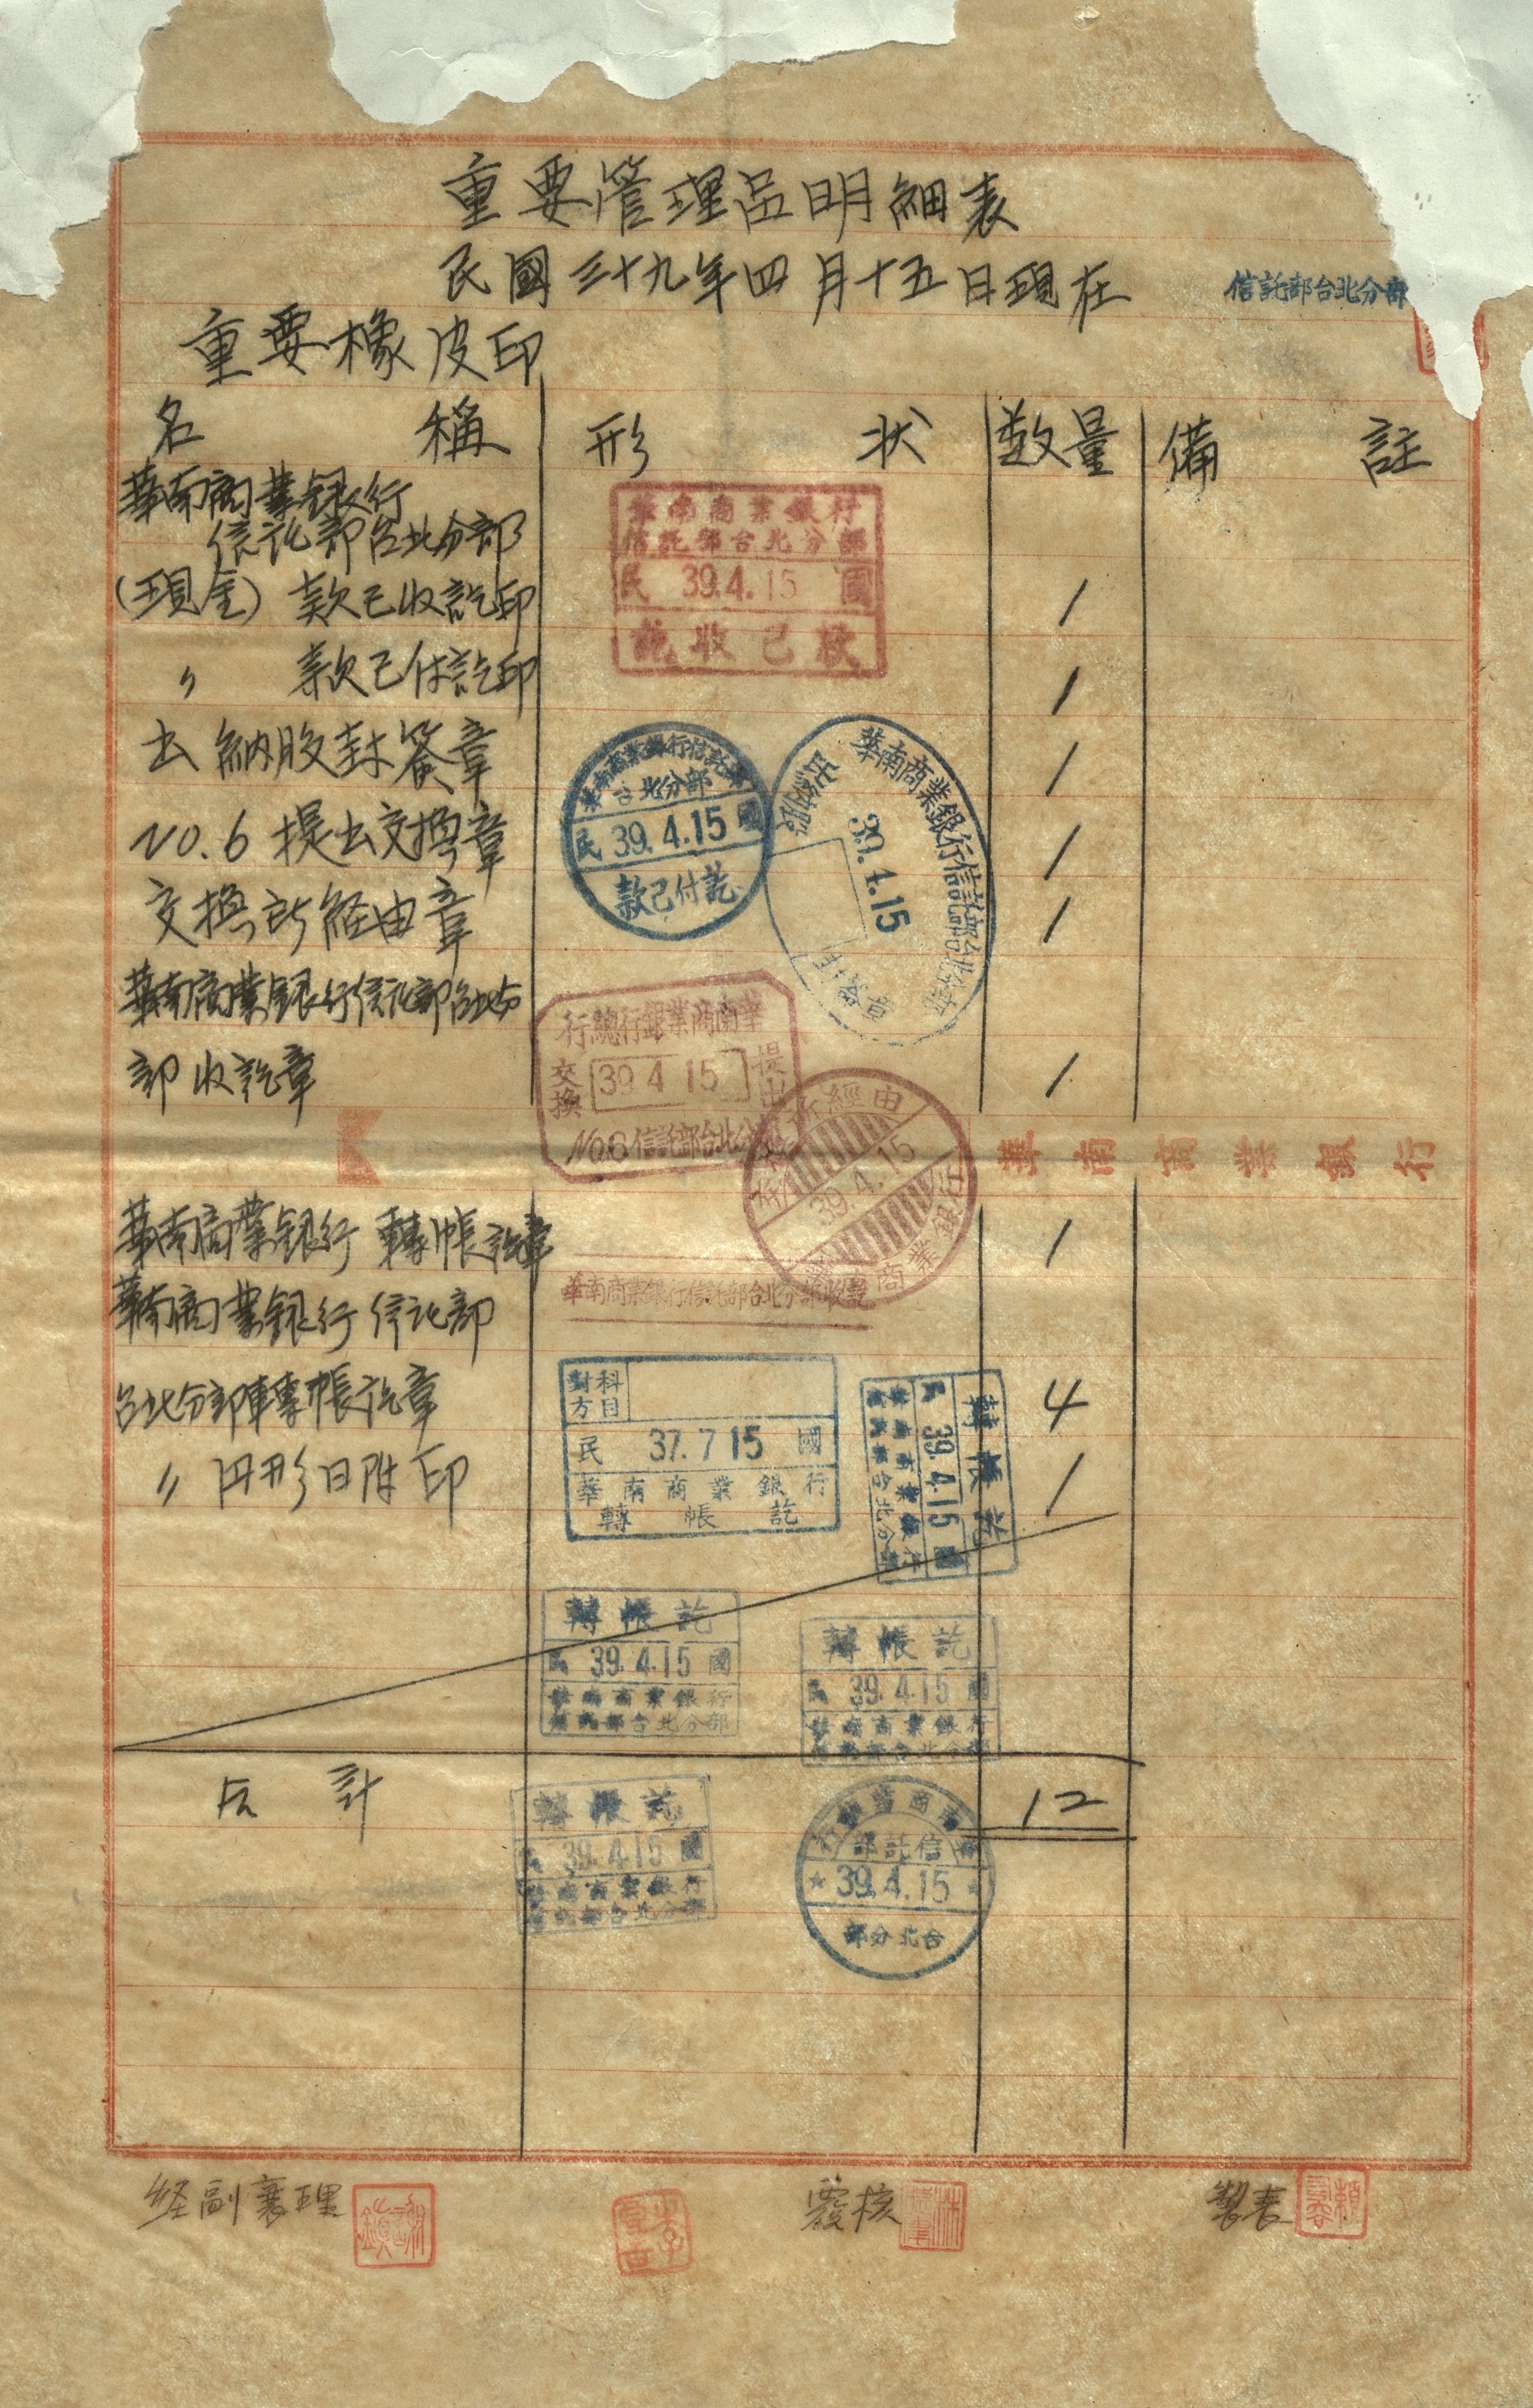 重要管理品明細表
民國三十九年四月十五日現在
信託部台北分部
重要橡皮印
名稱 形狀 数量 備註
華南商業銀行
信託部台北分部
(現金) 款已收訖印 1
〃 款已付訖印 1
出納股封簽章 1
NO.6 提出交換章 1
交換所経由章 1
華南商業銀行信託部台北分
部收訖章 1
華南商業銀行 轉帳訖章 1
華南商業銀行信託部
台北分部轉帳訖章 4
〃 円形日附印 1
合計 12
華南商業銀行
信託部台北分部
民 39.4.15 國
訖收已款
華南商業銀行信託部
台北分部
民 39.4.15 國
款已付訖
華南商業銀行信託部台北分部
39.4.15
出納股
華南商業銀行總行
提出
39 4 15
交換
No.6 信託部台北分部
交換所經由
39.4.15
華南商業銀行
華南商業銀行
華南商業銀行信託部台北分部收訖
科目
對方
民 37.7 15 國
華南商業銀行
轉帳訖
轉帳訖
民 39.4.15 國
華南商業銀行
信託部台北分部
轉帳訖
民 39.4.15 國
華南商業銀行
信託部台北分部
轉帳訖
民 39.4.15 國
華南商業銀行
信託部台北分部
轉帳訖
民 39.4.15 國
華南商業銀行
信託部台北分部
華南商業銀行
信託部
★ 39.4.15 ★
台北分部
経副襄理
覆核
製表